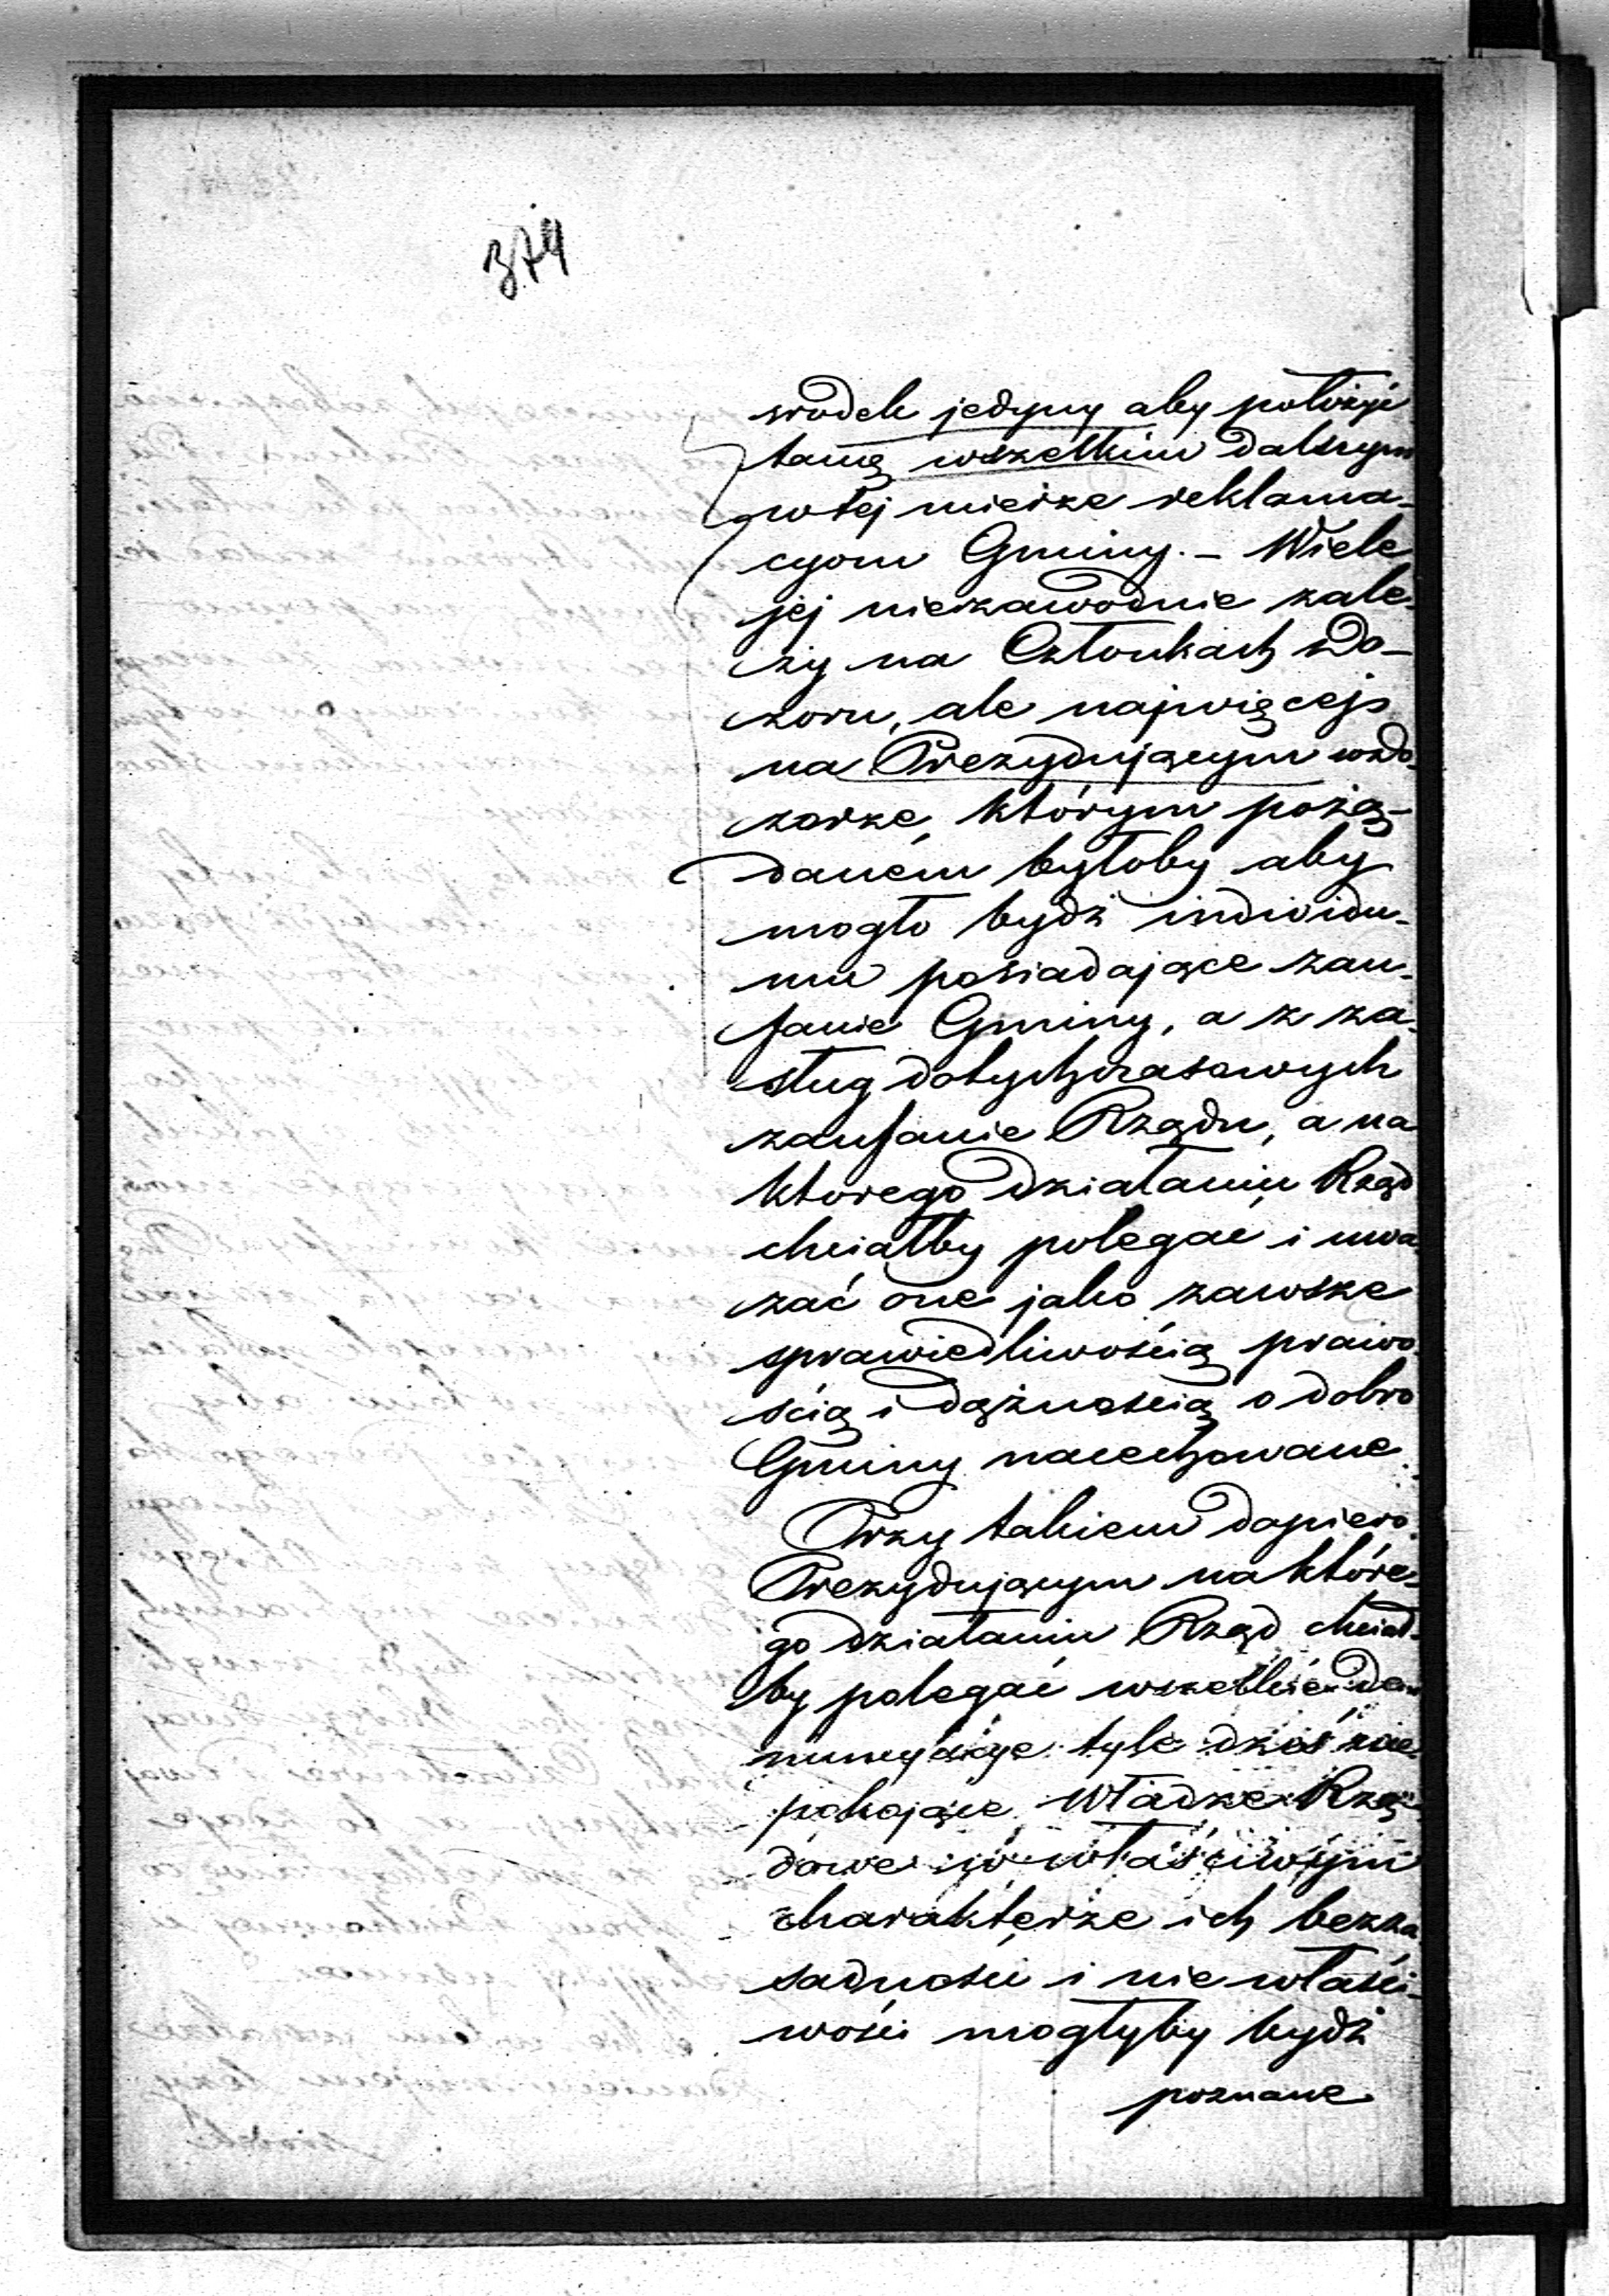 374
srodek jedyny aby położyć
tamę wszelkim dalszym
w tej mierze reklama-
cyom Gminy. – Wiele
jej niezawodnie zale-
ży na Członkach Do-
zoru, ale najwięcej
na Prezydującym w do-
zorze, którym pożą-
daném byłoby aby
mogło bydź individu-
um posiadające zau-
fanie Gminy, a z za-
sług dotychczasowych
zaufanie Rządu, a na
ktorego działaniu Rząd
chciałby polegać i uwa-
żać one jako zawsze
sprawiedliwością prawo-
ścią i dążnością o dobro
Gminy nacechowane.
Przy takiem dopiero
Prezydującym na które-
go działaniu Rząd chciał-
by polegać wszelkie De-
nuncyacye tyle dziś nie-
pokojące Władze Rzą-
dowe w właściwym
charakterze ich bezza-
sadności i nie właści-
wości mogłyby bydź
poznane